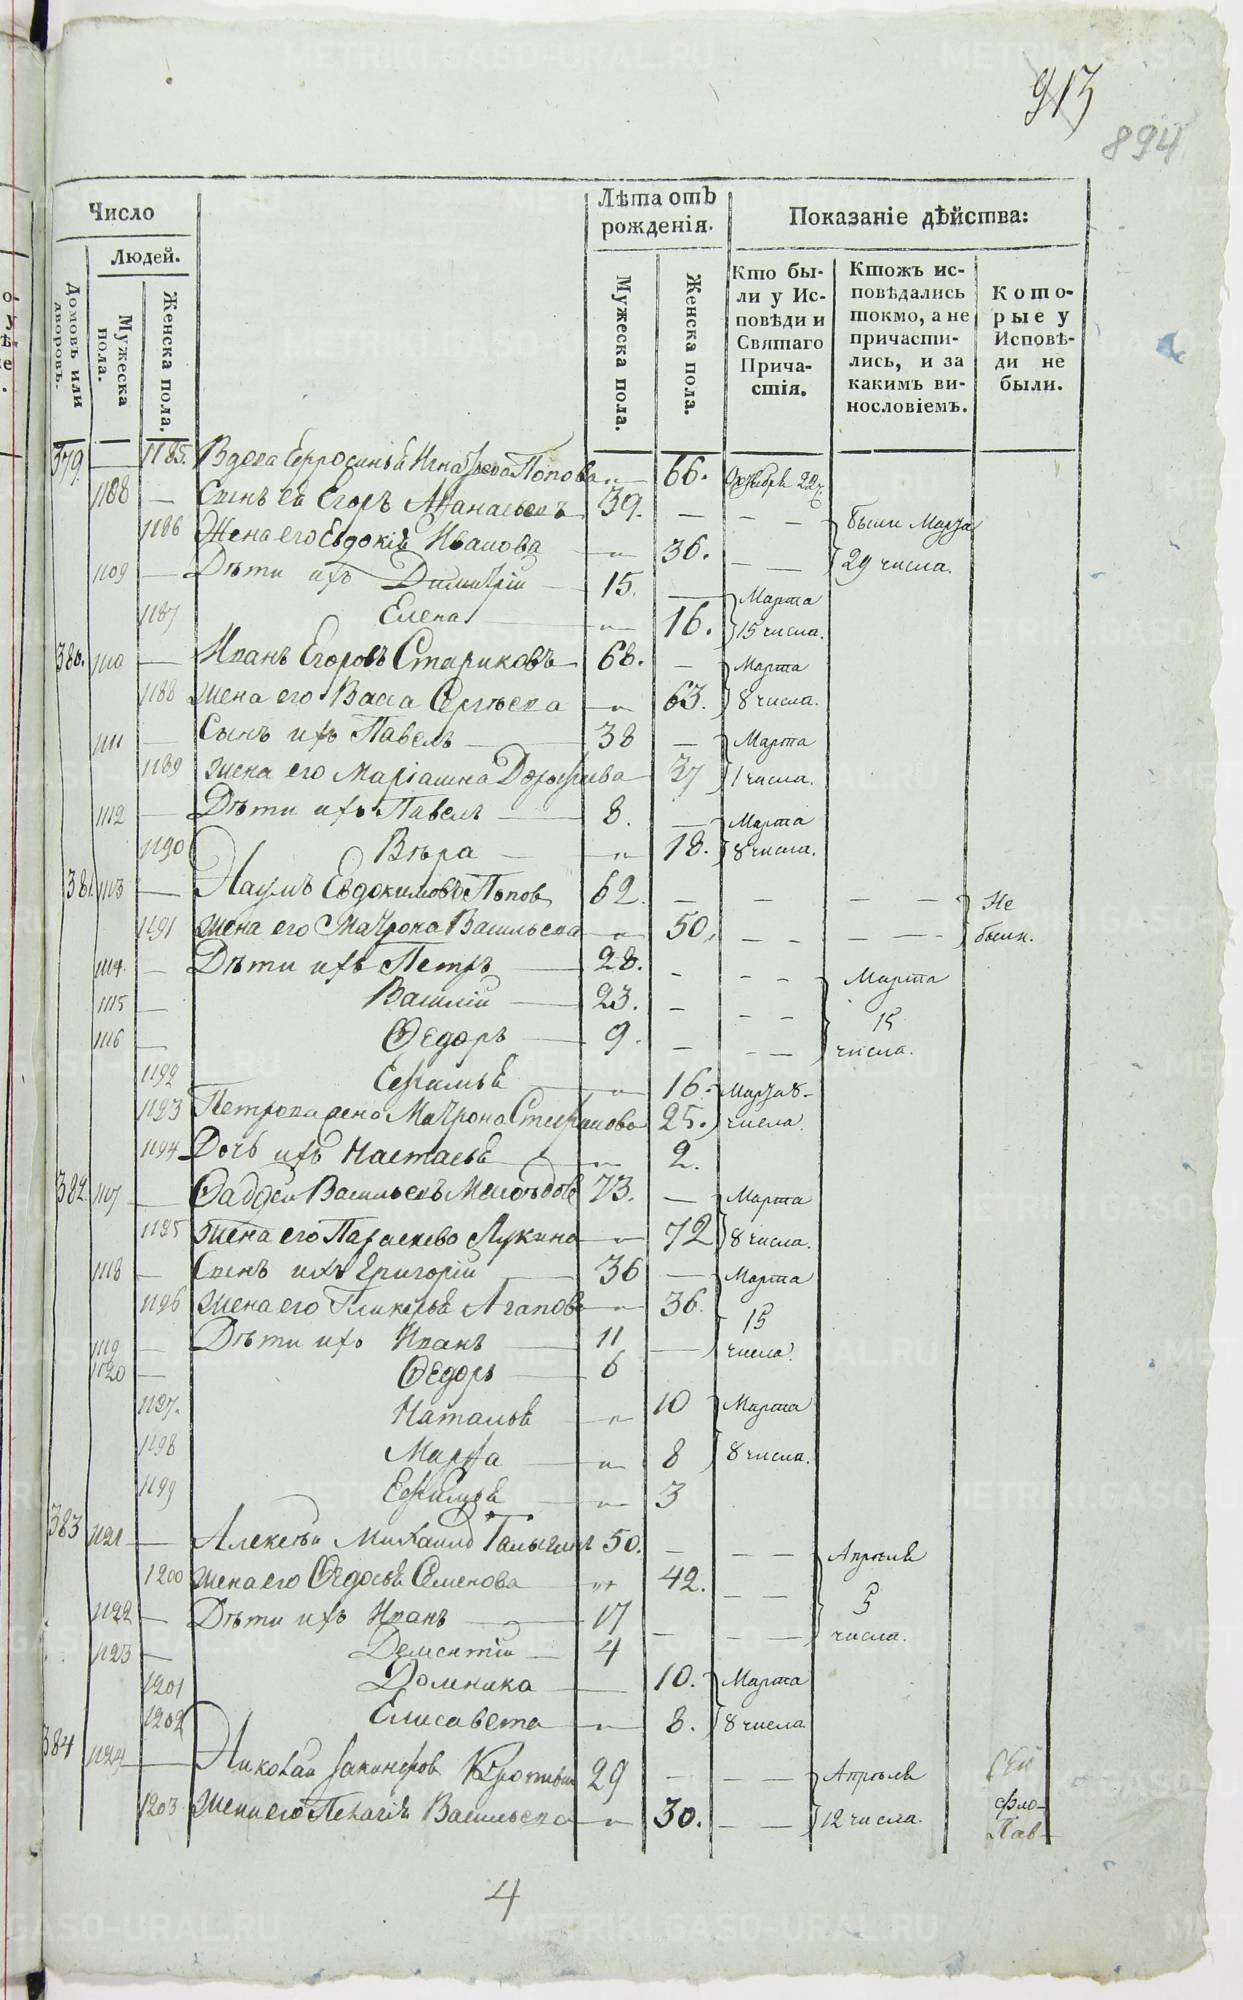 913
894
Число
Людей.
Домовъ или дворовъ.
Мужеска пола.
Женска пола.
Лѣта отъ рожденія.
Мужеска пола.
Женска пола.
Показаніе дѣйства:
Кто были у Исповѣди и Святаго Причастія.
Ктожъ исповѣдались токмо, а не причастились, и за какимъ винословіемъ.
Которые у Исповѣди не были.
379. — 1185. Вдова Евросинья Попова — 66. 22
1108 — Сынъ ея Егоръ Аѳанасьевъ 39. — — — были Марта
1186 Жена его Евдокія Иванова — 36. — — 29 числа.
1109 — Дѣти ихъ Димитрій — 15. — Марта
1187 Елена — 16. 15 числа.
380. 1110 — Иванъ Егоровъ Стариковъ 68. — Марта
1188 Жена его Васса Сергѣева — 63. 8 числа.
1111 — Сынъ ихъ Павелъ — 38 — Марта
1189 жена его Маріамна — 37 1 числа.
1112 — Дѣти ихъ Павелъ — 8. — Марта
1190 Вѣра — 18. 8 числа.
381. 1113 — Наумъ Евдокимовъ Поповъ 62. — — — — — Не
1191 жена его Матрона Васильева — 50. — — — — были.
1114. — Дѣти ихъ Петръ — 28. — — — Марта
1115 — Василій — 23. — — — 15
1116 — Ѳедоръ — 9. — — — числа.
1192 Евѳимья — 16. Марта 8-
1193 Петрова жена Матрона Стефанова 25. числа.
1194 Дочь ихъ Настасья — 2.
382. 1117 — Ѳаддей Васильевъ 73. — Марта
1195 Жена его Параскева Лукина — 72 8 числа.
1118 — Сынъ ихъ Григорій — 36 — Марта
1196 жена его Гликерья Агапова — 36. 15
1119 — Дѣти ихъ Иванъ — 11 — числа.
1120 — Ѳедоръ — 6
1197. Наталья — 10 Марта
1198 Марѳа — 8 8 числа.
1199 Евѳимья — 3
383 1121 — Алексѣй Михаил 50. — — — Апрѣля
1200 жена его Ѳедосья Семенова — 42. — — 5
1122 — Дѣти ихъ Иванъ — 17 — — — числа.
1123 — Дементій — 4
1201 Домника — 10. Марта
1202 Елисавета — 8. 8 числа
384 1124 — Николай 29 — — — Апрѣля
1203 Жена его Пелагія Васильева — 30. — — 12 числа.
4
METRIKI.GASO-URAL.RU